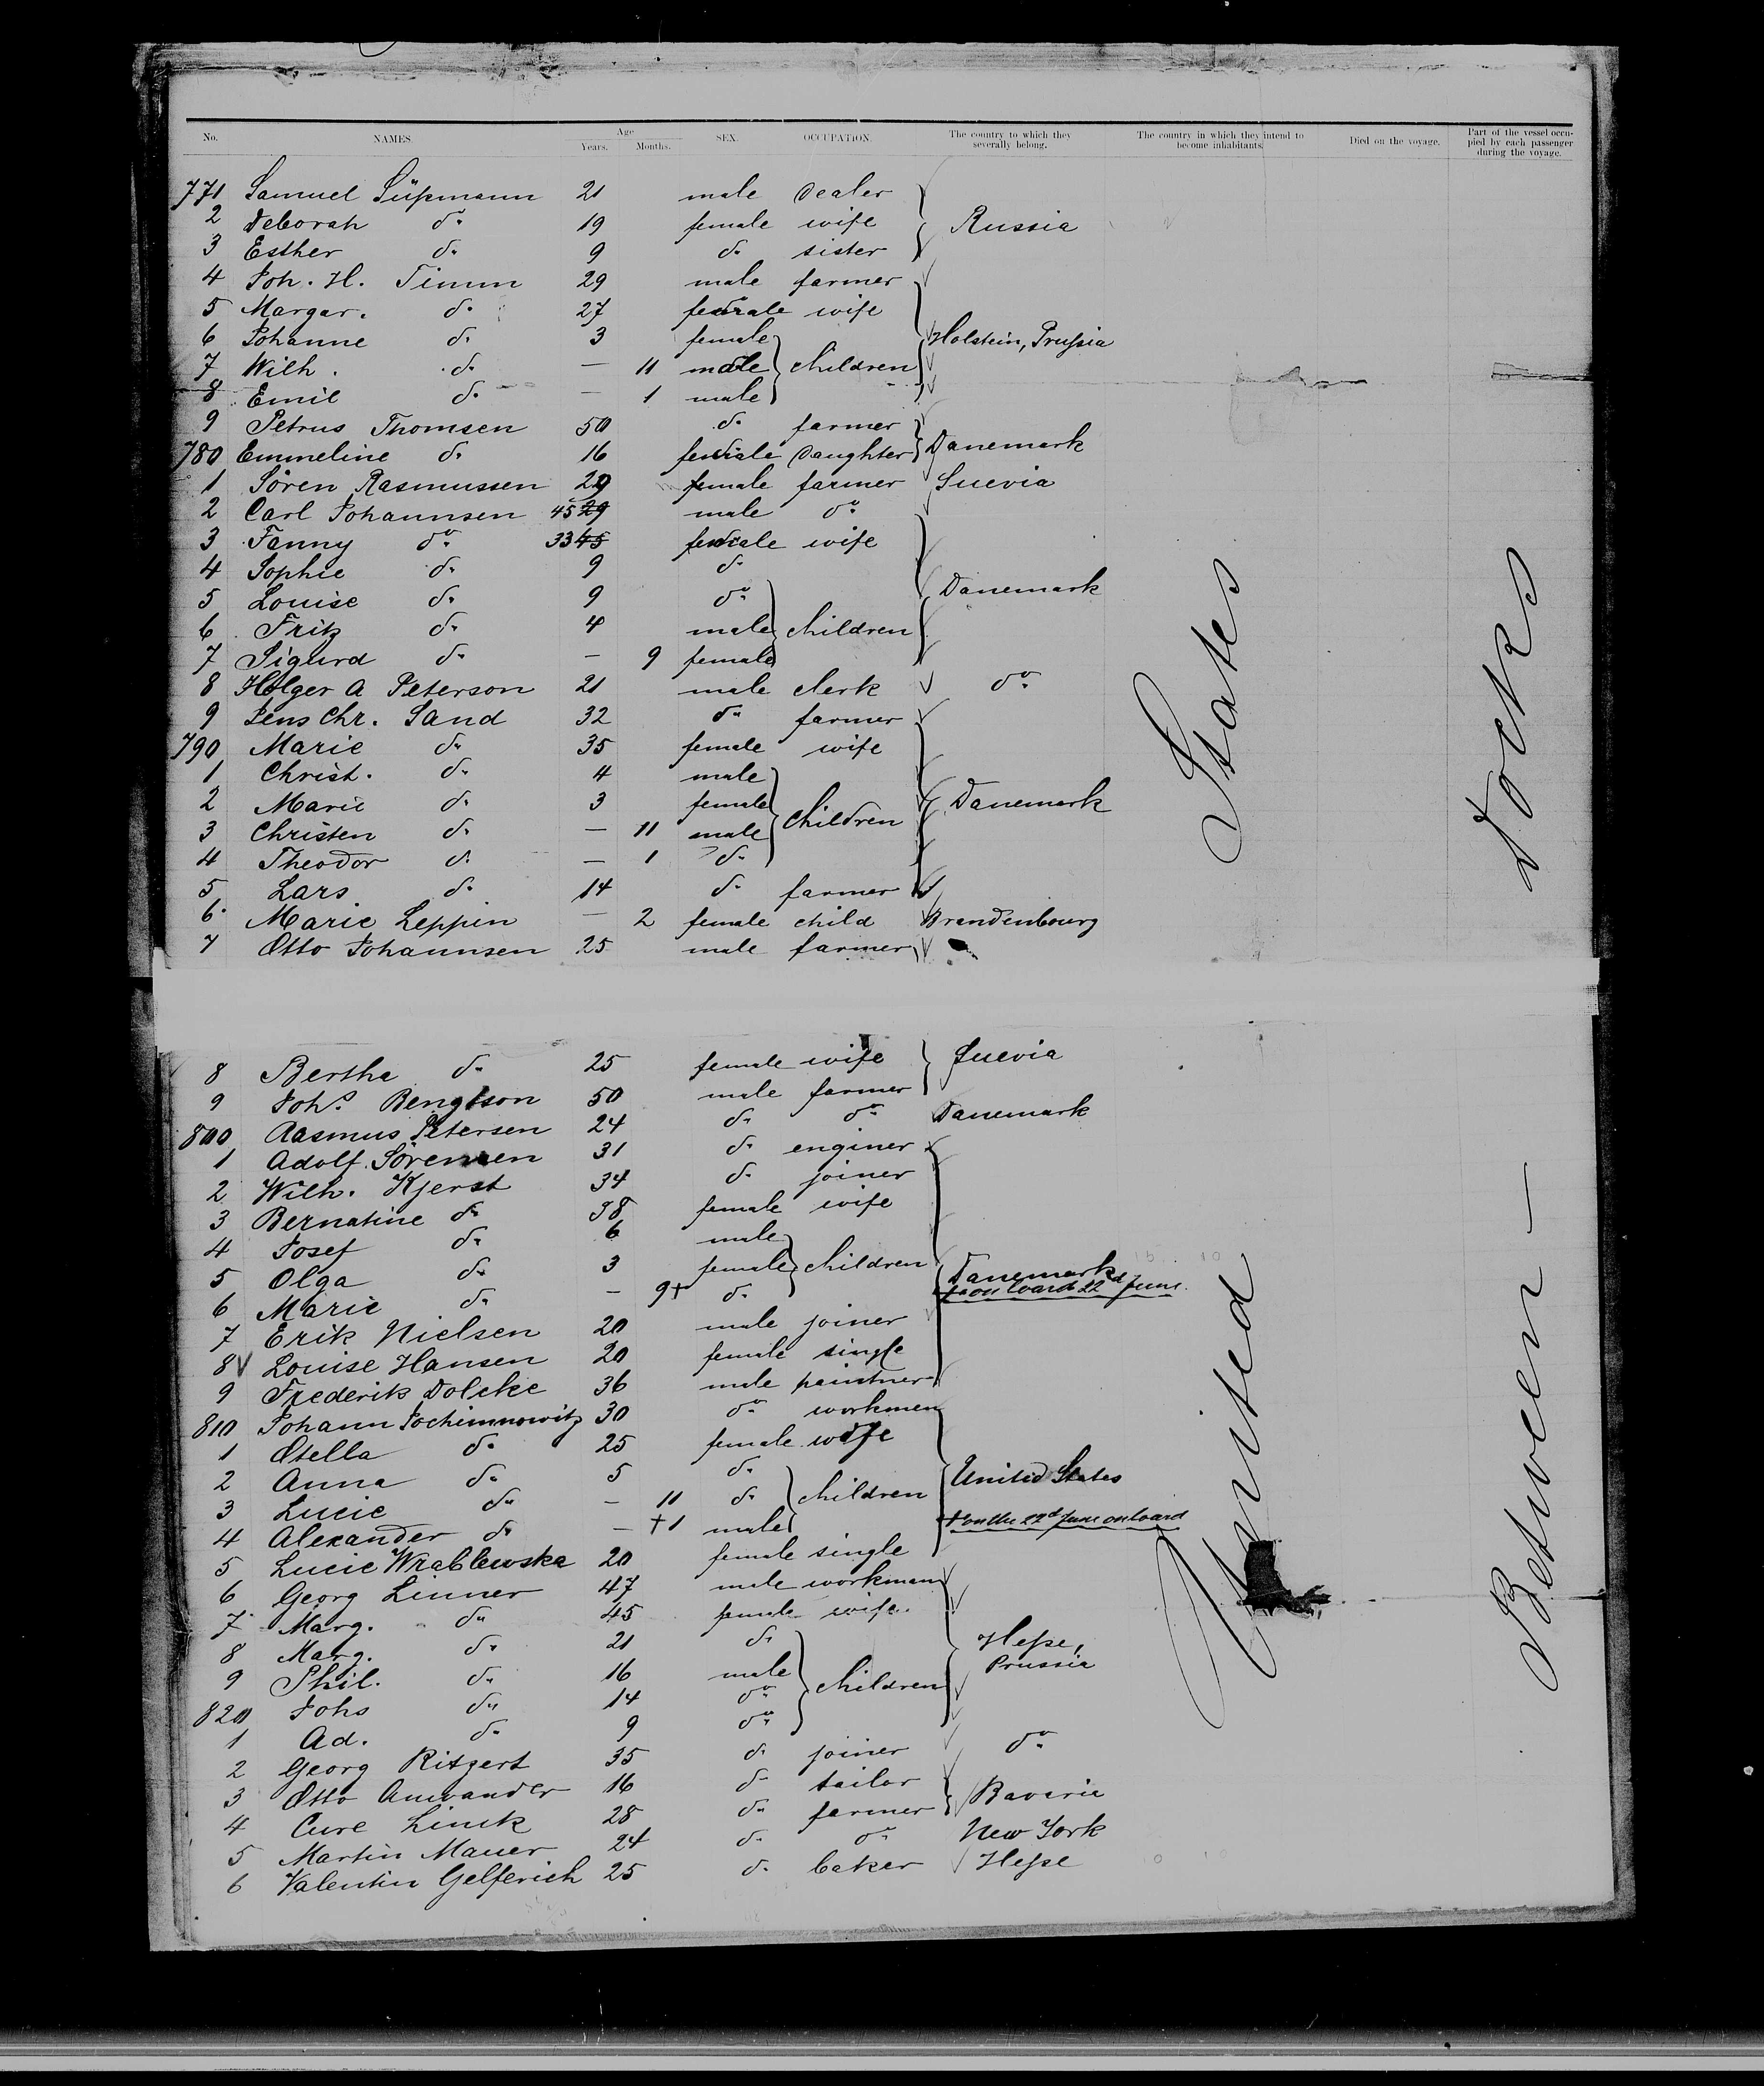 No. NAMES. Age Years. Months. SEX. OCCUPATION. The country to which they severally belong. The country in which they intend to become inhabitants. Died on the voyage. Part of the vessel occupied by each passenger during the voyage.
771 Samuel Süßmann 21 male dealer
2 Deborah do. 19 female wife Russia
3 Esther do. 9 do. sister
4 Joh. H. Timm 29 male farmer
5 Margar. do. 27 female wife
6 Johanne do. 3 female Holstein, Prußia
7 Wilh. do. — 11 male children
8 Emil do. — 1 male
9 Petrus Thomsen 50 do. farmer
780 Emmeline do. 16 female daughter Danemark
1 Sören Rasmussen 29 female farmer Suevia
2 Carl Johannsen 45 29 male do.
3 Fanny do. 33 45 female wife
4 Sophie do. 9 do.
5 Louise do. 9 do. Danemark
6 Fritz do. 4 male children
7 Sigurd do. — 9 female
8 Holger A Peterson 21 male clerk do.
9 Jens Chr. Sand 32 do. farmer
790 Marie do. 35 female wife
1 Christ. do. 4 male
2 Marie do. 3 female Danemark
3 Christen do. — 11 male children
4 Theodor do. — 1 do.
5 Lars do. 14 do. farmer
6 Marie Leppin — 2 female child Brandenbourg
7 Otto Johannsen 25 male farmer
8 Bertha do. 25 female wife Suevia
9 Johs. Bengtson 50 male farmer
800 Rasmus Petersen 24 do. do. Danemark
1 Adolf Sörensen 31 do. enginer
2 Wilh. Kjerst 34 do. joiner
3 Bernatine do. 38 female wife
4 Josef do. 6 male
5 Olga do. 3 female children Danemark
6 Marie do. — 9+ do. + on board 22d June.
7 Erik Nielsen 20 male joiner
8 Louise Hansen 20 female single
9 Frederik Dolcke 36 male paintner
810 Johann Jochimnowitz 30 do. workmen
1 Otella do. 25 female wife
2 Anna do. 5 do. United States
3 Lucie do. — 11 do. children
4 Alexander do. — +1 male + on the 22d June on board
5 Lucie Wrablewska 20 female single
6 Georg Linner 47 male workman
7 Marg. do. 45 female wife
8 Marg. do. 21 do. Heße,
9 Phil. do. 16 male children Prussia
820 Johs do. 14 do.
1 Ad. do. 9 do.
2 Georg Ritzert 35 do. joiner do.
3 Otto Anwander 16 do. tailor Bavaria
4 Cure Linck 28 do. farmer
5 Martin Mauer 24 do. do. New York
6 Valentin Gelferich 25 do. baker Heße
United States
Between — Decks